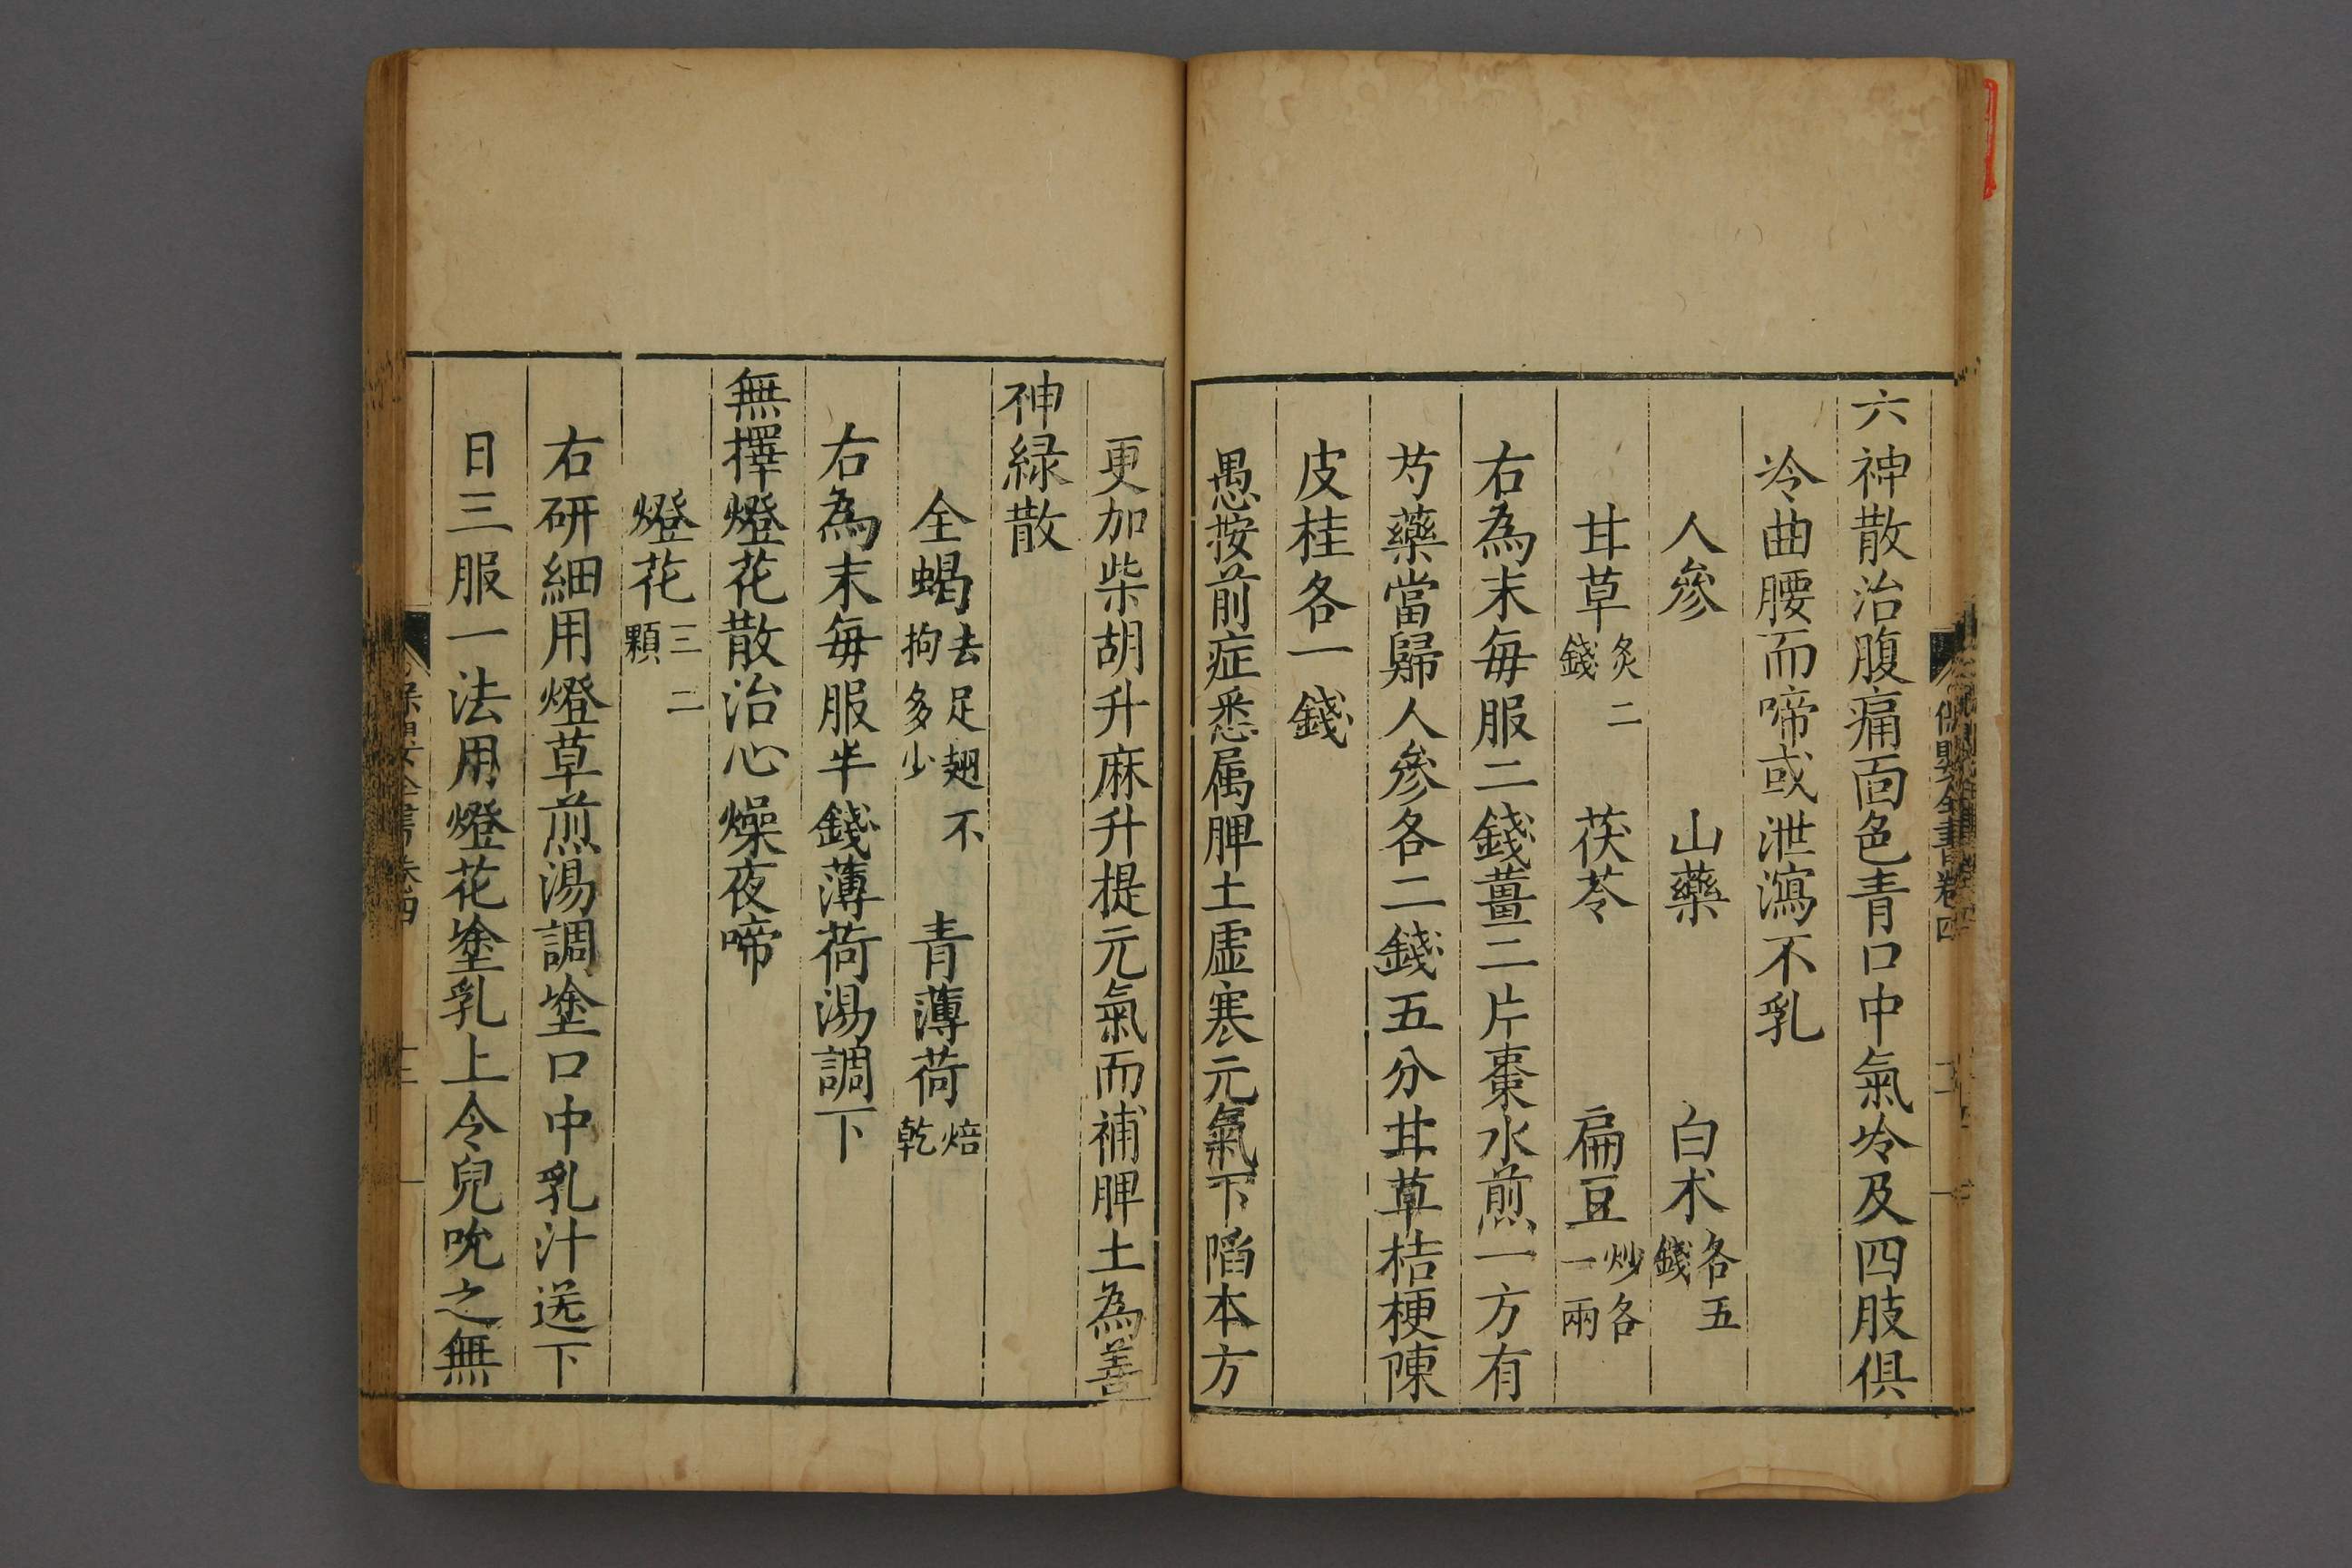 六神散治腹痛靣色青口中氣冷及四肢俱
冷曲腰而啼或泄瀉不乳
人參 山藥 白术各五錢
甘草炙二錢 茯苓 扁豆炒各一兩
右為末每服二錢薑二片棗水煎一方有
芍藥當歸人參各二錢五分甘草桔梗陳
皮桂各一錢
愚按前症悉属脾土虛寒元氣下陷本方
更加柴胡升麻升提元氣而補脾土為善
神緑散
全蝎去足翅不拘多少 青薄荷焙乾
右為末每服半錢薄荷湯調下
無擇燈花散治心燥夜啼
燈花三二顆
右研細用燈草煎湯調塗口中乳汁送下
日三服一法用燈花塗乳上令兒吮之無